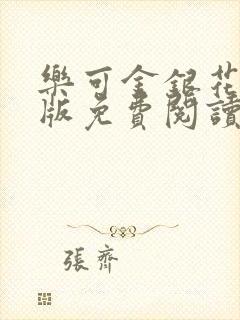 樂可金銀花
版免費閱讀
張齊